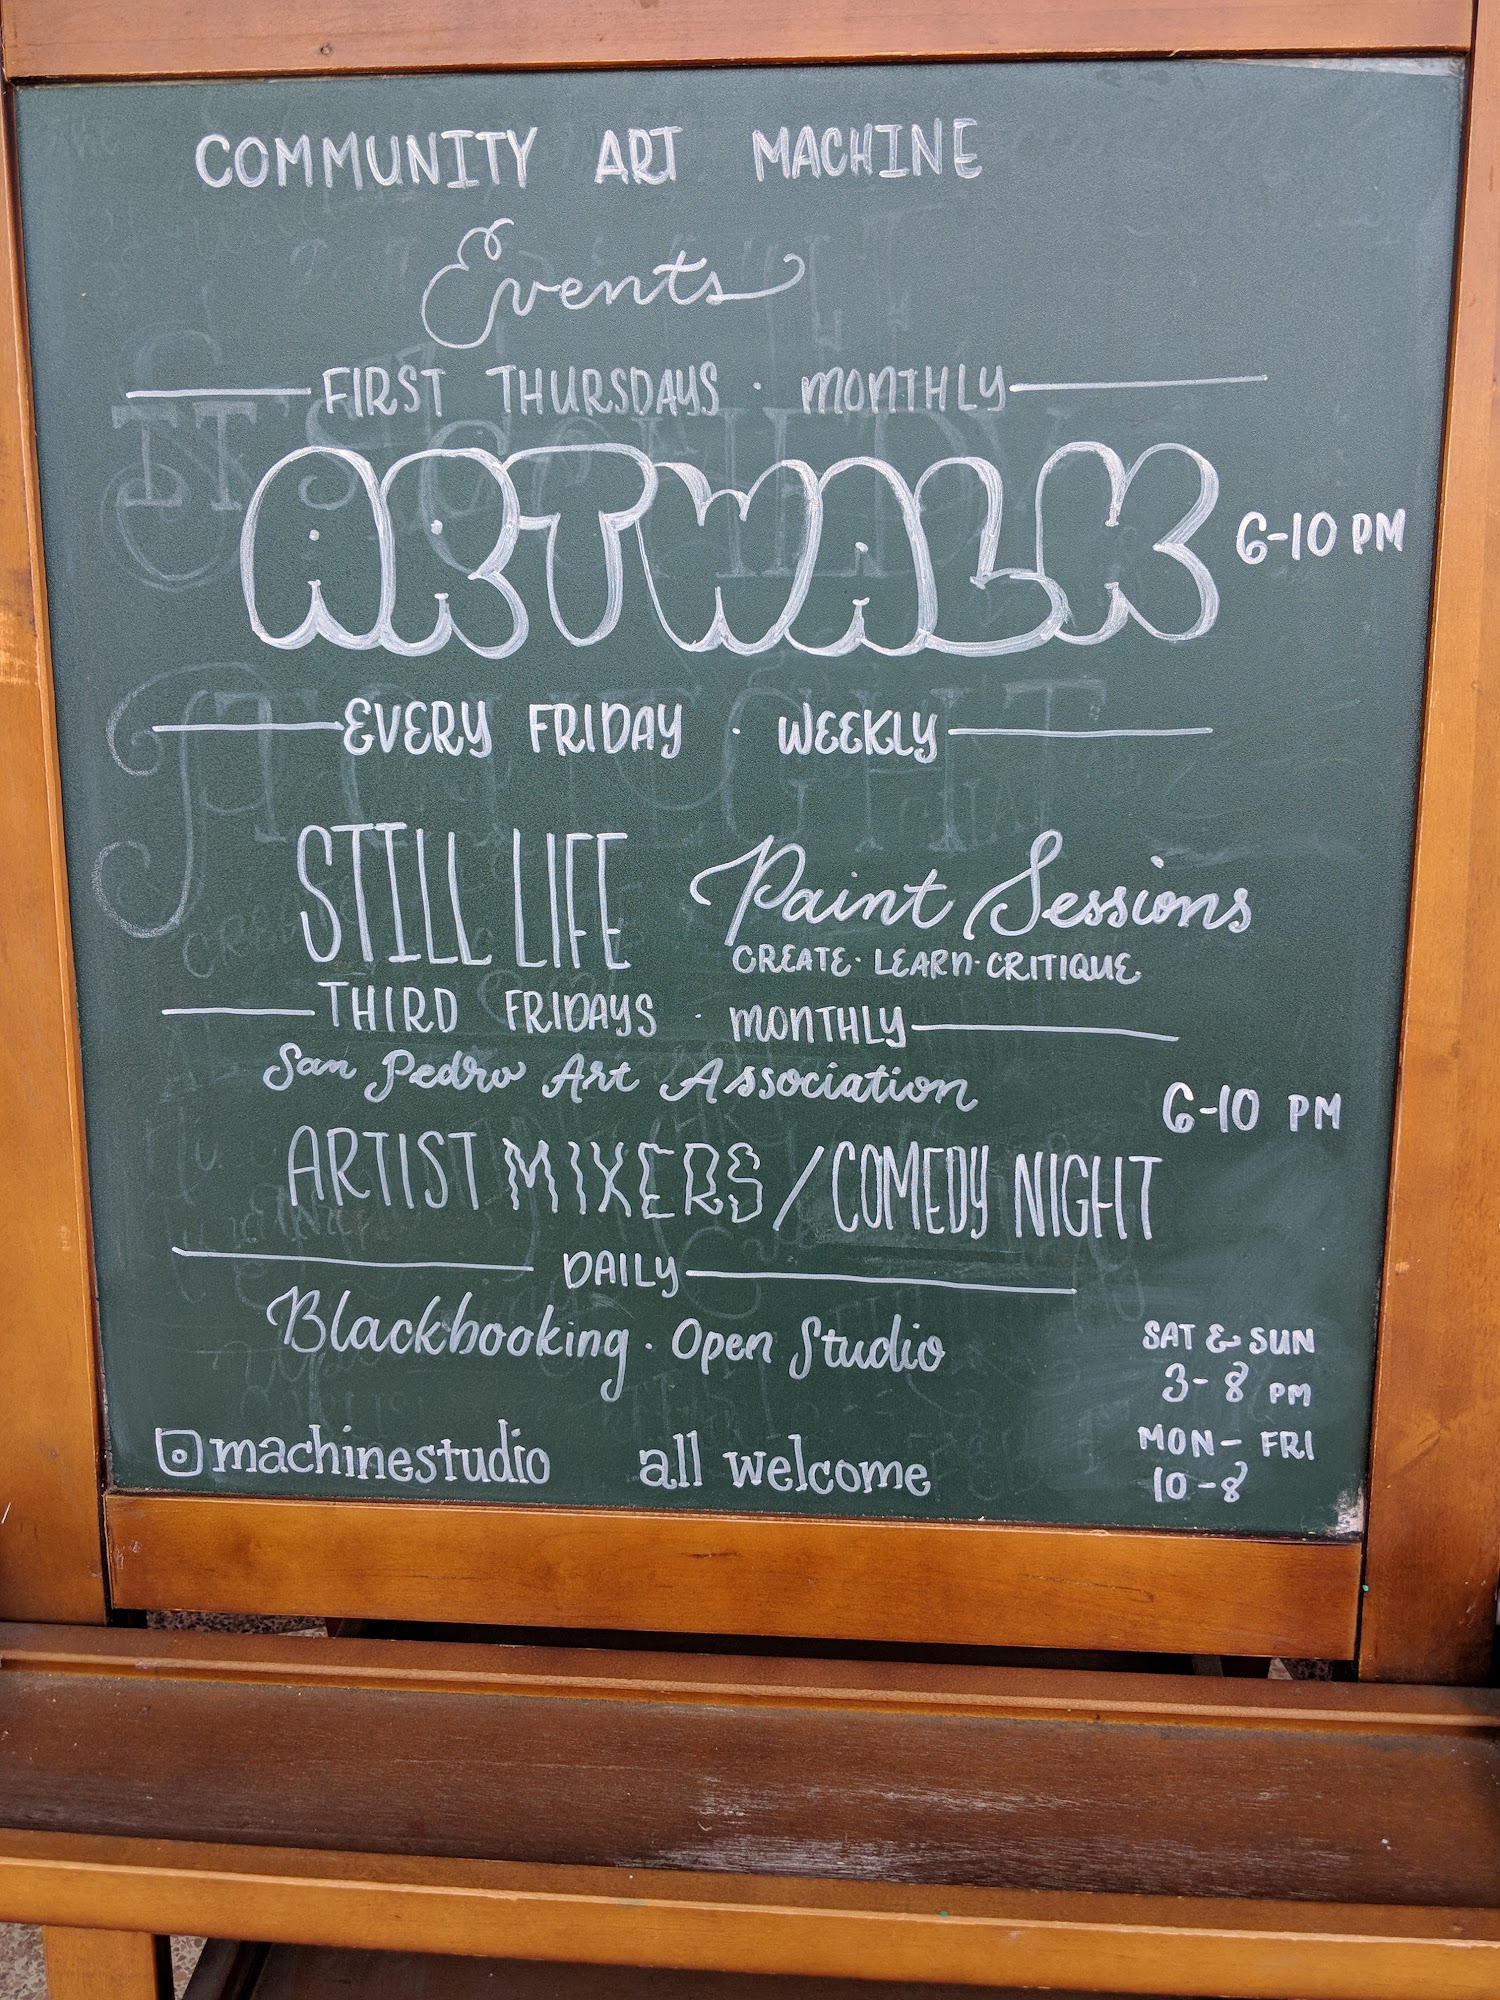 COMMUNITY ART MACHINE
Events
FIRST THURSDAYS · MONTHLY
ARTWALK 6-10 PM
EVERY FRIDAY · WEEKLY
STILL LIFE Paint Sessions
CREATE · LEARN · CRITIQUE
THIRD FRIDAYS · MONTHLY
San Pedro Art Association
6-10 PM
ARTIST MIXERS / COMEDY NIGHT
DAILY
Blackbooking · Open Studio
SAT & SUN
3-8 PM
MON - FRI
10-8
machinestudio all welcome